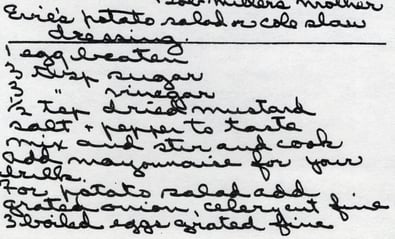 Millers mother
Evie's potato salad or cole slaw
dressing.
1 egg beaten
3 tbsp sugar
3 " vinegar
1/2 tsp dried mustard
salt + pepper to taste
mix and stir and cook
add mayonnaise for your
For potato salad add
grated onion, celery cut fine
3 boiled eggs grated fine